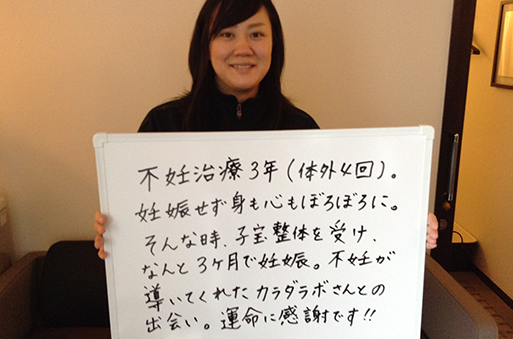 不妊治療3年（体外4回）。
妊娠せず身も心もぼろぼろに。
そんな時、子宝整体を受け、
なんと3ヶ月で妊娠。不妊が
導いてくれたカラダラボさんとの
出会い。運命に感謝です!!